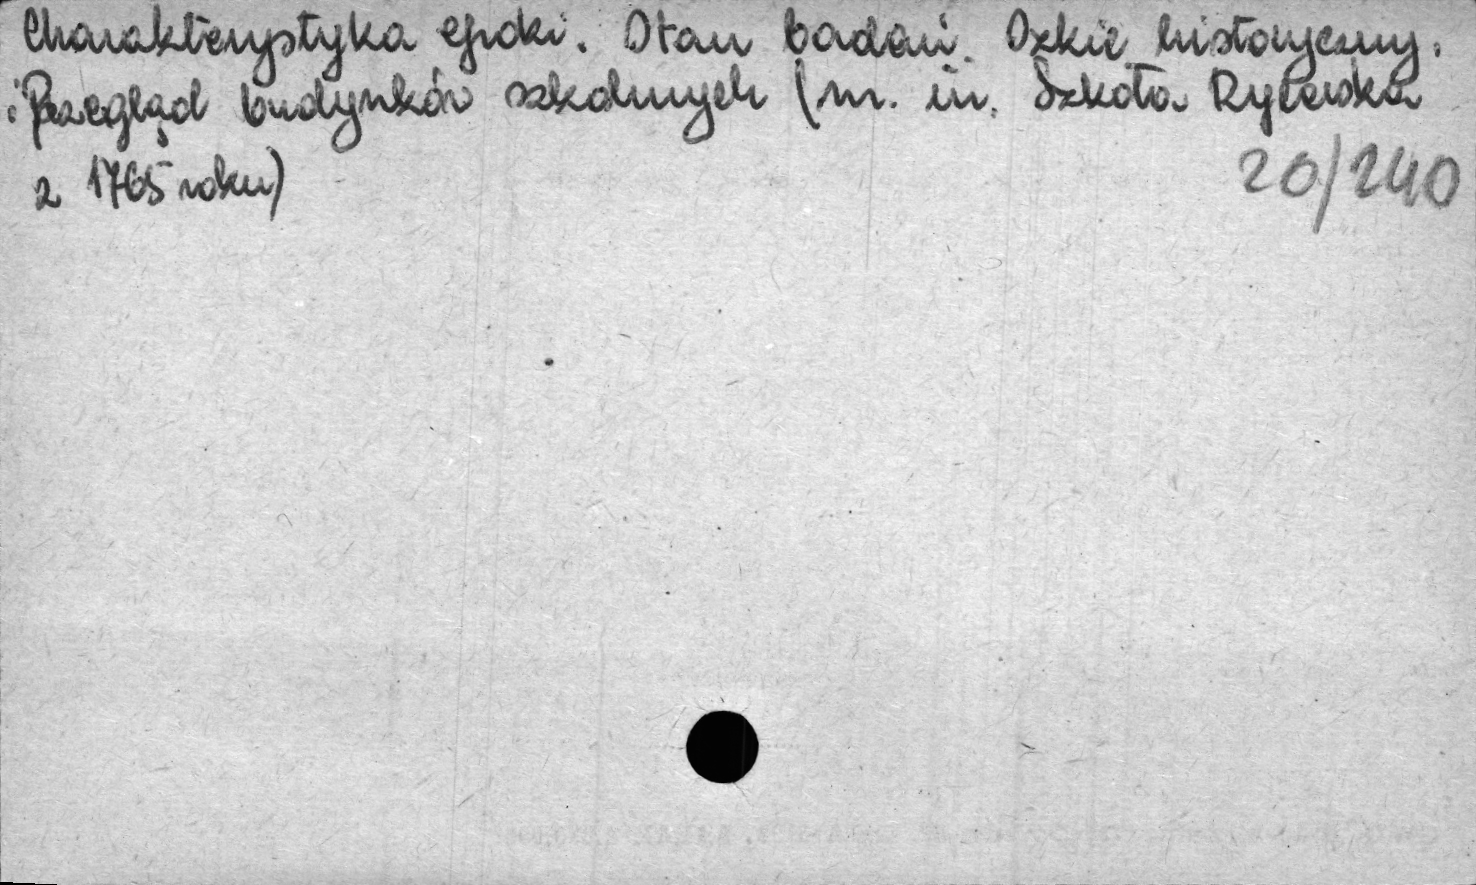 Charakterystyka epoki. Stan badań. Szkic historyczny.
i Przegląd budynków szkolnych (m. in. Szkoła Rycerska
z 1765 roku)
20/240